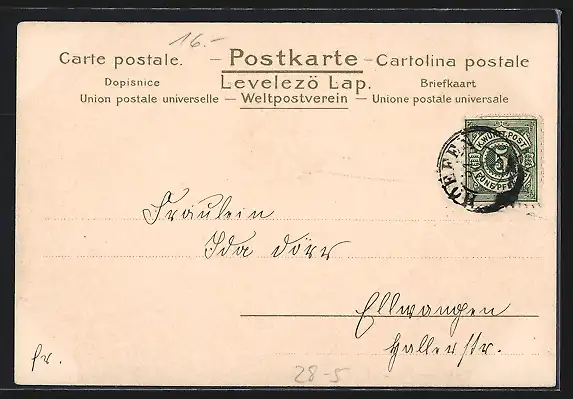 16.-
Carte postale. – Postkarte – Cartolina postale
Dopisnice Levelezö Lap. Briefkaart
Union postale universelle – Weltpostverein – Unione postale universale
K.WÜRTT.POST
5
FÜNF PFG
Fräulein
Ida Dörr
Ellwangen
Hallerstr.
fr.
28-5